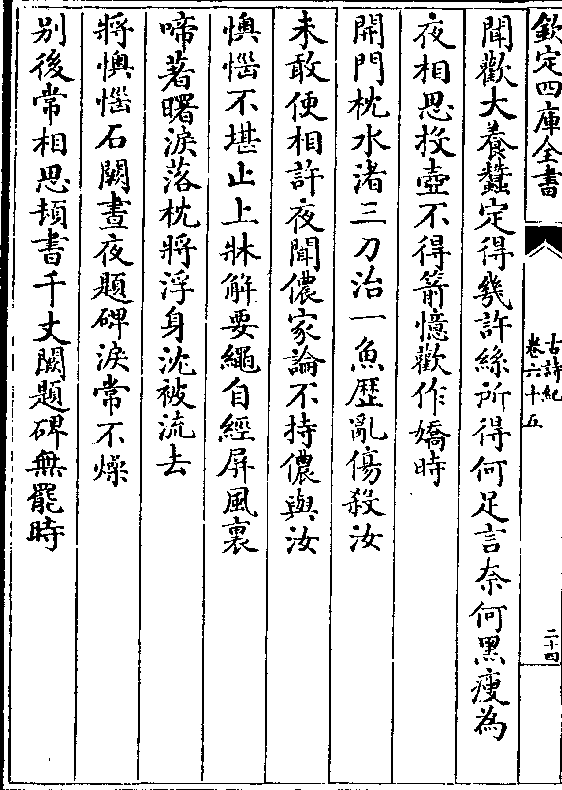 欽定四庫全書
古詩紀
卷六十五
二十四
聞歡大養蠶定得幾許絲所得何足言奈何黑瘦為
夜相思投壺不得箭憶歡作嬌時
開門枕水渚三刀治一魚歷亂傷殺汝
未敢便相許夜聞儂家論不持儂與汝
懊惱不堪止上牀解要繩自經屏風裏
啼著曙淚落枕將浮身沈被流去
將懊惱石闕晝夜題碑淚常不燥
别後常相思頓書千丈闕題碑無罷時